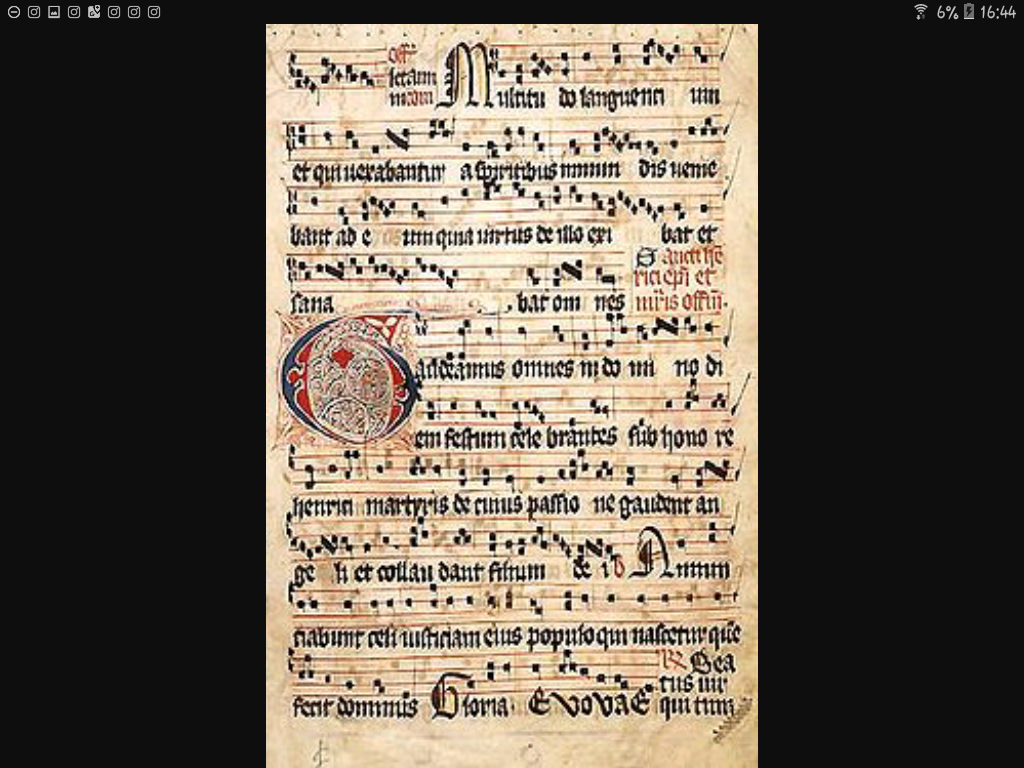 6% 16:44
Multitu do languenti um
et qui vexabantur a spiritibus immun dis venie
bant ad e um quia virtus de illo exi bat et
sana bat om nes
Sancti he
rici epi et
mris offm.
Gaudeamus omnes in do mi no di
em festum cele brantes sub hono re
henrici martyris de cuius passio ne gaudent an
ge li et collau dant filium de i Annun
ciabunt celi iusticiam eius populo qui nascetur que
fecit dominus Gloria. EVOVAE
Bea
tus vir
qui tim